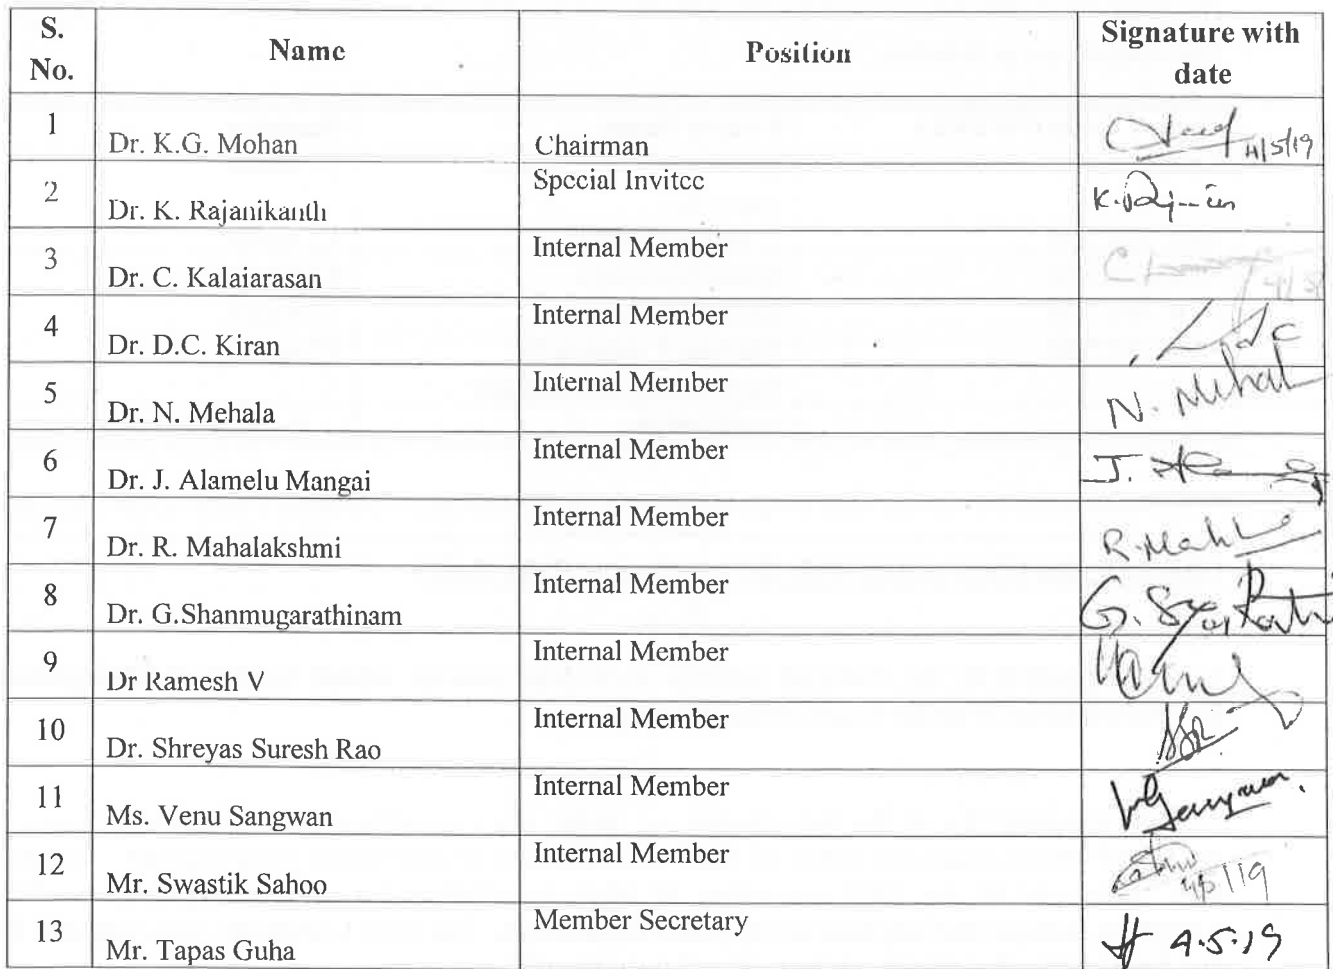 S. No. Name Position Signature with date
1 Dr. K.G. Mohan Chairman 4/5/19
2 Dr. K. Rajanikanth Special Invitee
3 Dr. C. Kalaiarasan Internal Member
4 Dr. D.C. Kiran Internal Member
5 Dr. N. Mehala Internal Member N. Mehal
6 Dr. J. Alamelu Mangai Internal Member J.
7 Dr. R. Mahalakshmi Internal Member
8 Dr. G.Shanmugarathinam Internal Member G.
9 Dr Ramesh V Internal Member
10 Dr. Shreyas Suresh Rao Internal Member
11 Ms. Venu Sangwan Internal Member
12 Mr. Swastik Sahoo Internal Member
13 Mr. Tapas Guha Member Secretary 4.5.19